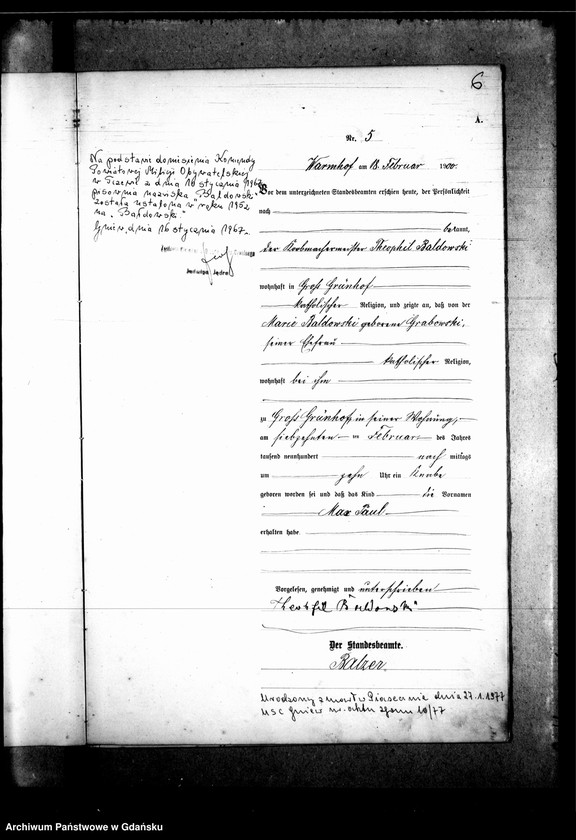 6
A.
Nr. 5
Warmhof am 18. Februar 1900.
Vor dem unterzeichneten Standesbeamten erschien heute, der Persönlichkeit
nach
bekannt,
der Korbmachermeister Theophil Baldowski
wohnhaft in Groß Grünhof
katholischer Religion, und zeigte an, daß von der
Marie Baldowski geborene Grabowski,
seiner Ehefrau
katholischer Religion,
wohnhaft bei ihm
zu Groß Grünhof, in seiner Wohnung,
am siebzehnten Februar des Jahres
tausend neunhundert nach mittags
um zehn Uhr ein Knabe
geboren worden sei und daß das Kind die Vornamen
Max Paul
erhalten habe.
Vorgelesen, genehmigt und unterschrieben
Theofil Baldowski
Der Standesbeamte.
Balzer.
Na podstawie doniesienia Komendy
Powiatowej Milicji Obywatelskiej
w Tczewie z dnia 16 stycznia 1967
pisownia nazwiska "Baldowski"
została ustalona w roku 1952
na "Bałdowski".
Gniew, dnia 16 stycznia 1967.
Jadwiga
Urodzony zmarł w Piasecznie dnia 27.1.1977
USC Gniew nr. aktu zgonu 10/77
Archiwum Państwowe w Gdańsku